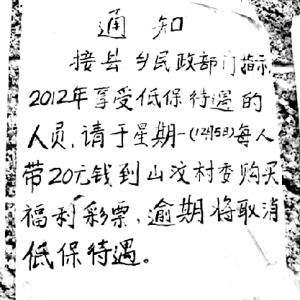 通知
接县乡民政部门指示,
2012年享受低保待遇的
人员,请于星期一(12月5日)每人
带20元钱到山汶村委购买
福利彩票,逾期将取消
低保待遇。